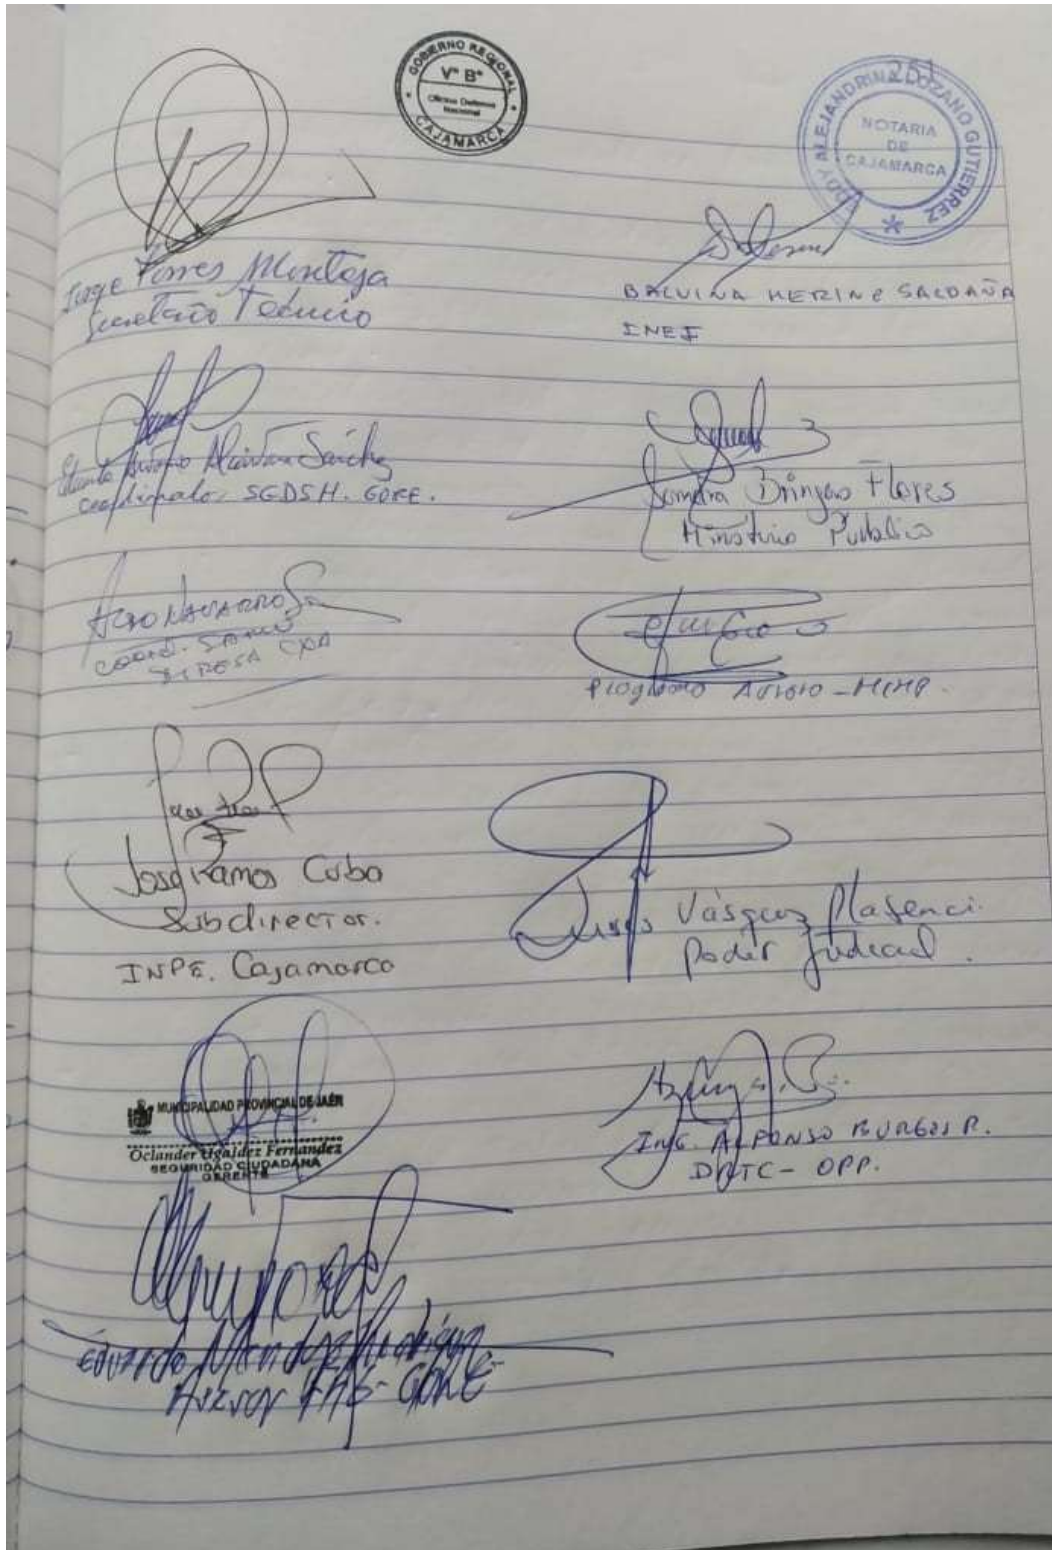 GOBIERNO REGIONAL
V° B°
Oficina Defensa
Nacional
CAJAMARCA
251
EDDY ALEJANDRINA LOZANO GUTIERREZ
NOTARIA
DE
CAJAMARCA
Jorge Torres Montoya
Secretario Tecnico
BALVINA MERINO SALDAÑA
INEI
Sánchez
SGDSH. GORE.
Sandra Bringas Flores
Ministerio Publico
NAVARRO S
COORD. SAMU
DIRESA CAJ
Programa Aurora - MIMP.
José Ramos Cubo
Subdirector.
INPE. Cajamarca
Vásquez Plasenci
Poder Judicial.
MUNICIPALIDAD PROVINCIAL DE JAÉN
Oclander Ugaldez Fernandez
SEGURIDAD CIUDADANA
GERENTE
ING. ALFONSO BURGOS R.
DRTC - OPP.
Eduardo
Asesor - GORE